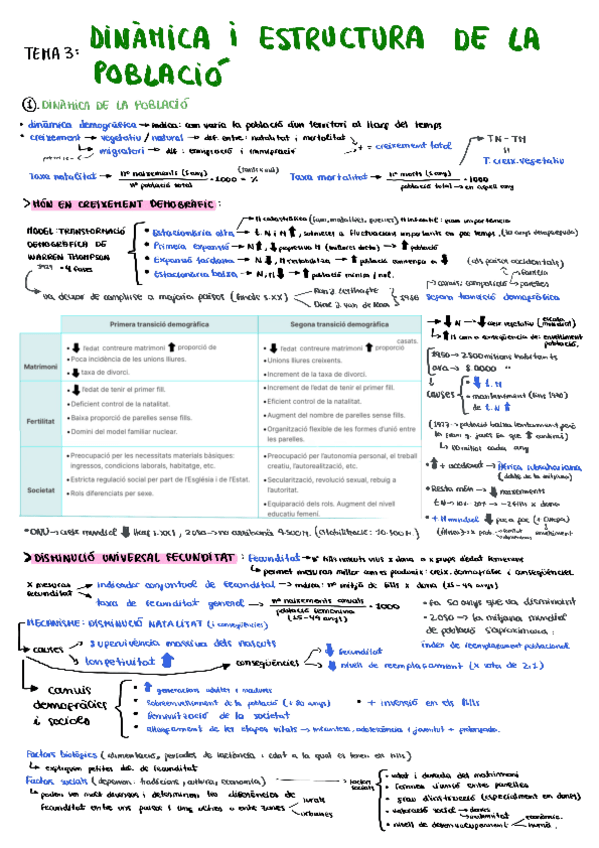 TEMA 3: DINÀMICA i ESTRUCTURA DE LA
POBLACIÓ
1. DINÀMICA DE LA POBLACIÓ
• dinàmica demogràfica → indica: com varia la població d'un territori al llarg del temps
• creixement → vegetatiu / natural → dif. entre: natalitat i mortalitat
→ migratori → dif: emigració i immigració
+ = creixement total
TN - TM
T. creix. vegetatiu
Taxa natalitat → nº naixements (1 any) / nº població total · 1000 = %
Taxa mortalitat → nº morts (1 any) / població total → en aquell any · 1000
> MÓN EN CREIXEMENT DEMOGRÀFIC:
MODEL TRANSFORMACIÓ
DEMOGRÀFICA DE
WARREN THOMPSON
1929 - 4 fases
• Estacionària alta → t. N i M ↑, sotmeses a fluctuacions importants en poc temps
• Primera expansió → N ↑, ↓ progressiu M → ↑ població
• Expansió tardana → N ↓, M s'estabilitza → ↑ població comença a ↓
• Estacionària baixa → N, M ↓ → ↑ població mínim / neg.
(als països occidentals)
→ va deixar de complir-se a majoria països (finals s.XX)
1986 segona transició demogràfica
Primera transició demogràfica
Segona transició demogràfica
Matrimoni
• ↓ l'edat contreure matrimoni ↑ proporció de
casats.
• Poca incidència de les unions lliures.
• ↓ taxa de divorci.
• ↑ l'edat contreure matrimoni ↓ proporció
• Unions lliures creixents.
• Increment de la taxa de divorci.
Fertilitat
• ↓ l'edat de tenir el primer fill.
• Deficient control de la natalitat.
• Baixa proporció de parelles sense fills.
• Domini del model familiar nuclear.
• Increment de l'edat de tenir el primer fill.
• Eficient control de la natalitat.
• Augment del nombre de parelles sense fills.
• Organització flexible de les formes d'unió entre
les parelles.
Societat
• Preocupació per les necessitats materials bàsiques:
ingressos, condicions laborals, habitatge, etc.
• Estricta regulació social per part de l'Església i de l'Estat.
• Rols diferenciats per sexe.
• Preocupació per l'autonomia personal, el treball
creatiu, l'autorealització, etc.
• Secularització, revolució sexual, rebuig a
l'autoritat.
• Equiparació dels rols. Augment del nivell
educatiu femení.
→ ↓ N → ↓ creix. vegetatiu
1950 → 2500 milions habitants
ara → 8.0000 "
causes
• ↓ t. M
• manteniment
de t. N ↑
• ↑ + accelerat → Àfrica subsahariana
• Resta món → ↓ naixements
> DISMINUCIÓ UNIVERSAL FECUNDITAT: Fecunditat → nº fills nascuts vius x dona
x mesurar
fecunditat
indicador conjuntural de fecunditat → indica: nº mitjà de fills x dona (15-49 anys)
taxa de fecunditat general → nº naixements anuals / població femenina (15-49 anys) · 1000
• fa 50 anys que va disminuint
• 2.050 → la mitjana mundial
de població s'aproximarà:
índex de reemplaçament poblacional
- MECANISME: DISMINUCIÓ NATALITAT (i conseqüències)
causes
→ supervivència massiva dels nascuts
→ longevitat ↑
conseqüències
↓ fecunditat
↓ nivell de reemplaçament (x sota de 2,1)
→ canvis
demogràfics
i socials
• ↑ generacions adultes i madures
• sobreenvelliment de la població (+ 80 anys)
• feminització de la societat
• allargament de les etapes vitals → infantesa, adolescència i joventut + prolongada.
• + inversió en els fills
Factors biològics (alimentació, períodes de lactància i edat a la qual es tenen els fills)
→ expliquen petites dif. de fecunditat
Factors socials (depenen: tradicions, cultura, economia)
→ poden ser molt diversos i determinen les diferències de
fecunditat entre uns països i uns altres o entre zones
rurals
urbanes
factors
socials
• edat i durada del matrimoni
• formes d'unió entre parelles
• grau d'instrucció (especialment en dones)
• valoració social
→ dones
→ maternitat
• nivell de desenvolupament
econòmic.
humà.